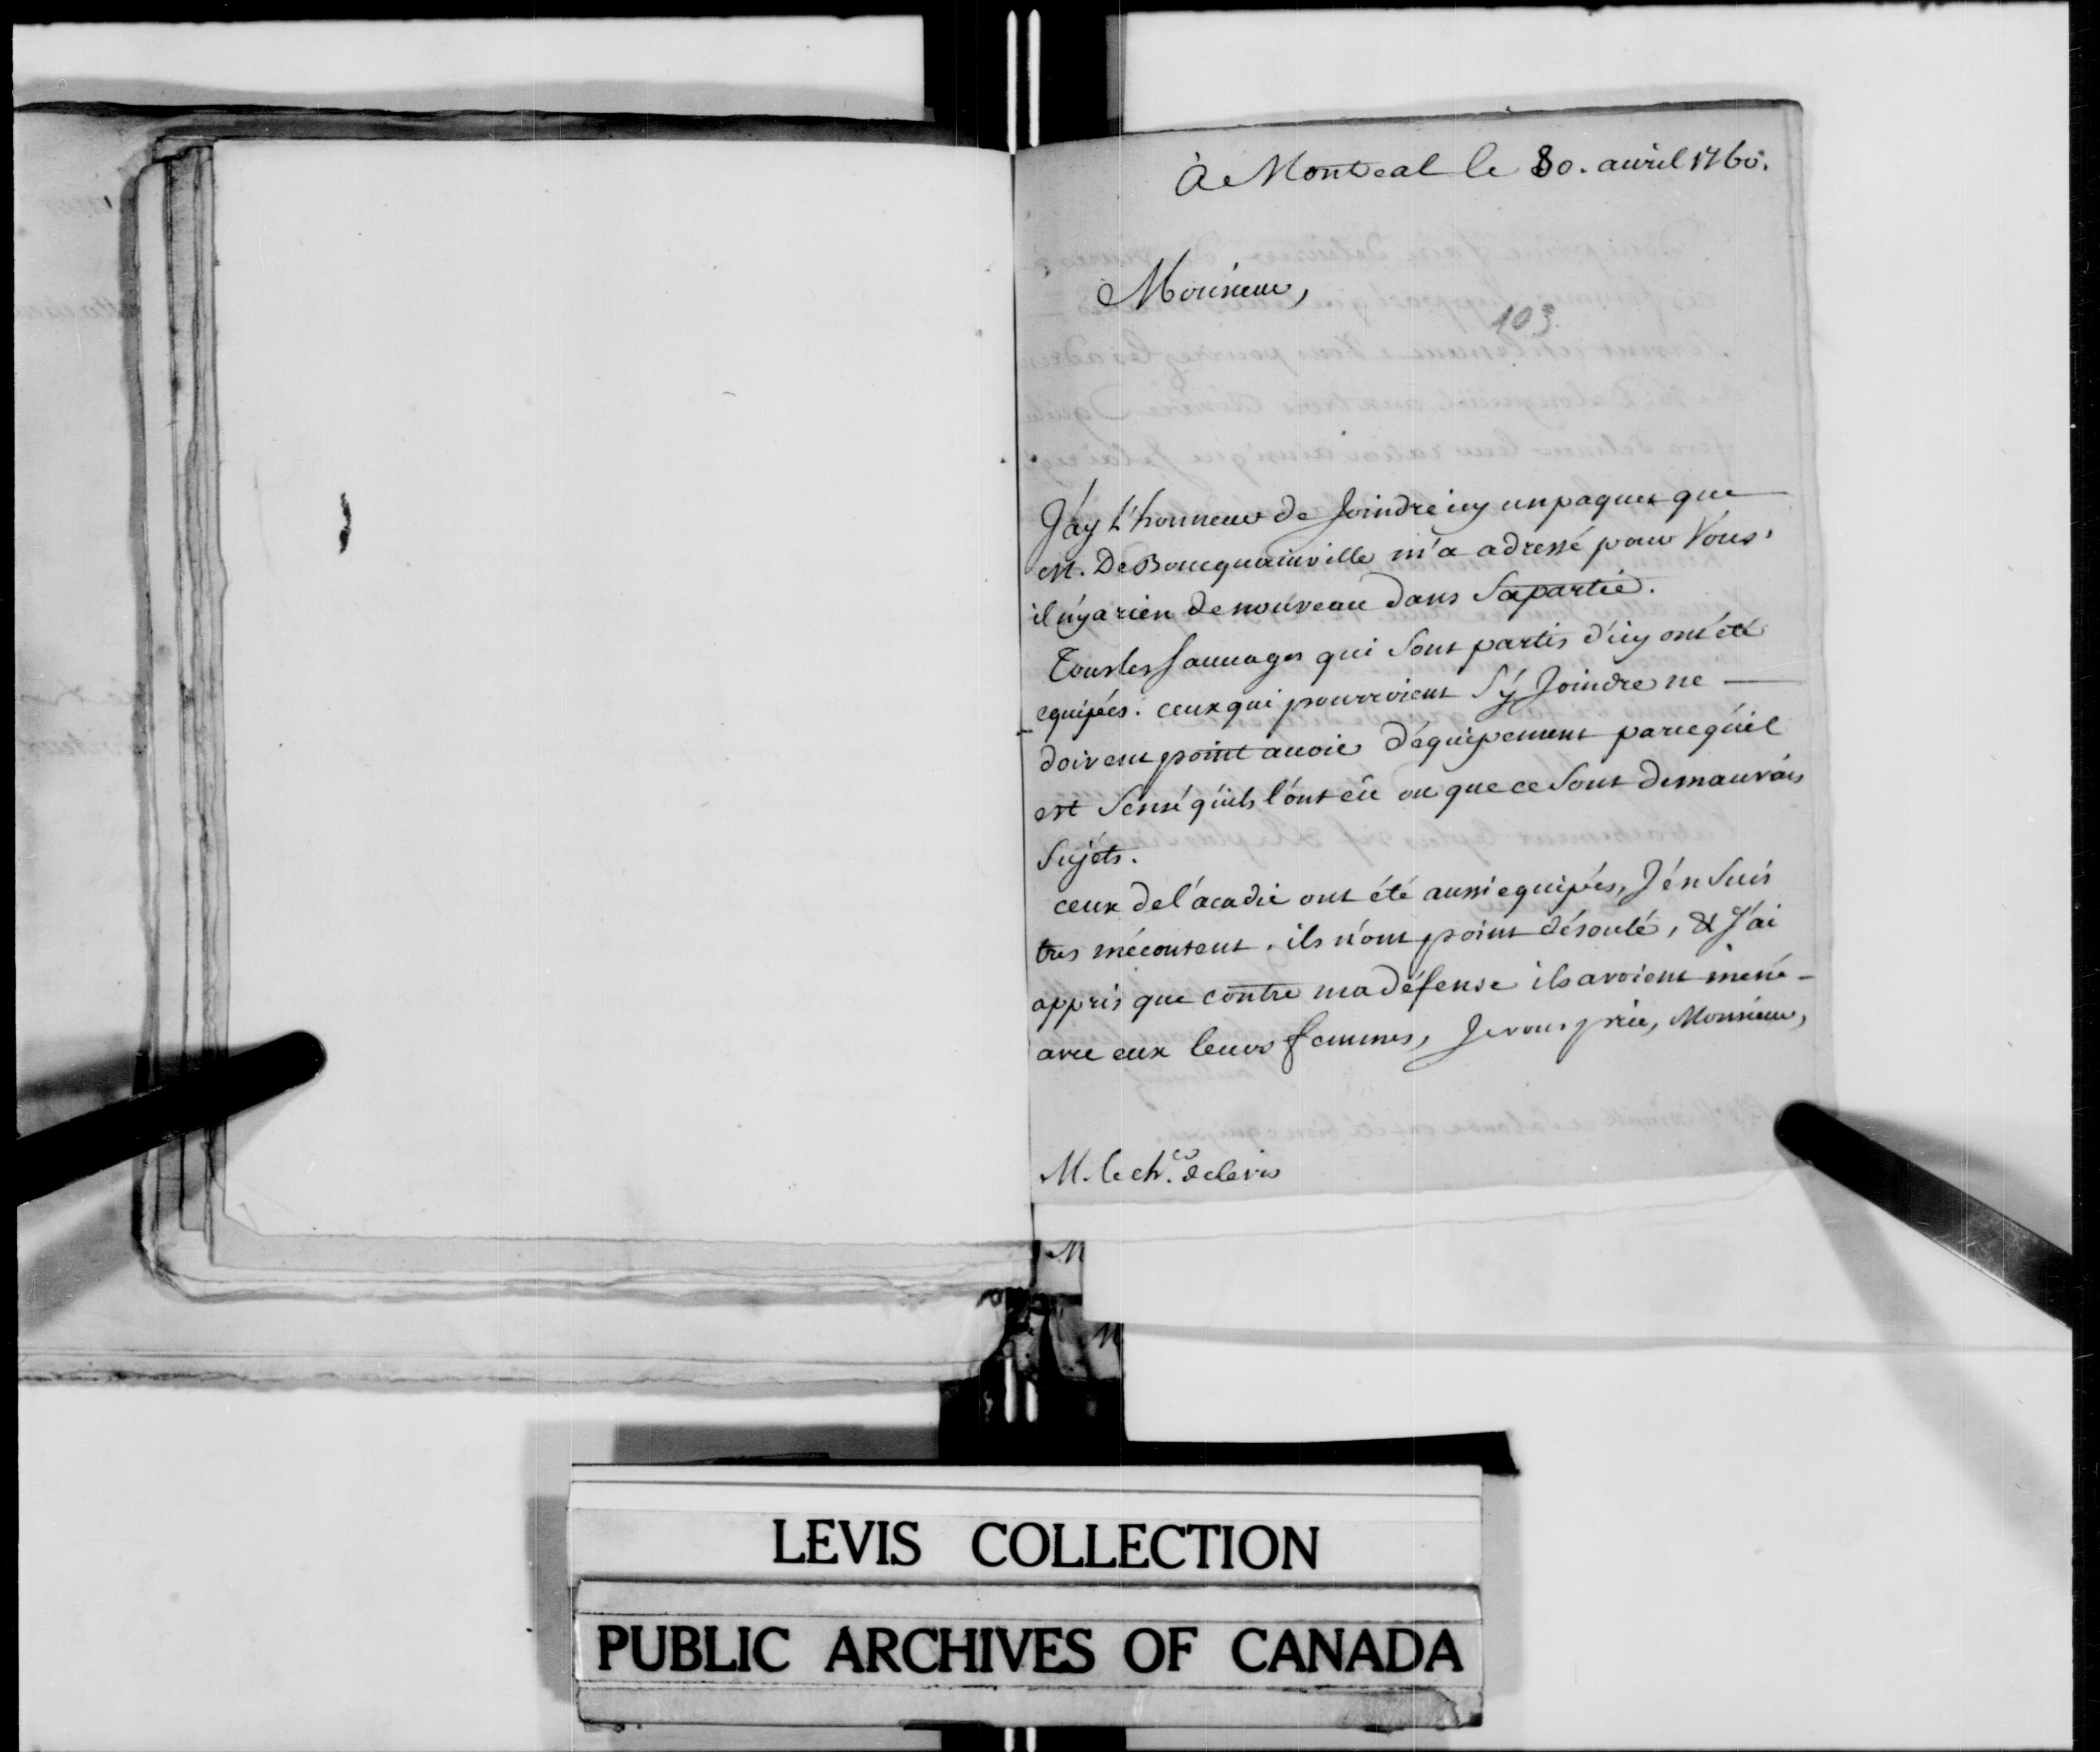 À Montreal le 30. avril 1760.
Monsieur,
103.
J'ay L'honneur de Joindre icy un paquet que
M. De Boucquainville m'a adressé pour Vous.
il n'y a rien de nouveau dans Sa partie.
Tous les Sauvages qui Sont partis d'icy ont été
equipées. ceux qui pourroient S'y Joindre ne
doivent point avoir d'équipement parcequ'il
est Sensé qu'ils l'ont eû ou que ce Sont de mauvais
Sujets.
ceux de l'acadie ont été aussi equipés, J'en Suis
tres mécontent. ils n'ont point écouté, & J'ai
appris que contre ma défense ils avoient mené
avec eux leurs femmes, Je vous prie, Monsieur,
M. le ch.er de levis
LEVIS COLLECTION
PUBLIC ARCHIVES OF CANADA